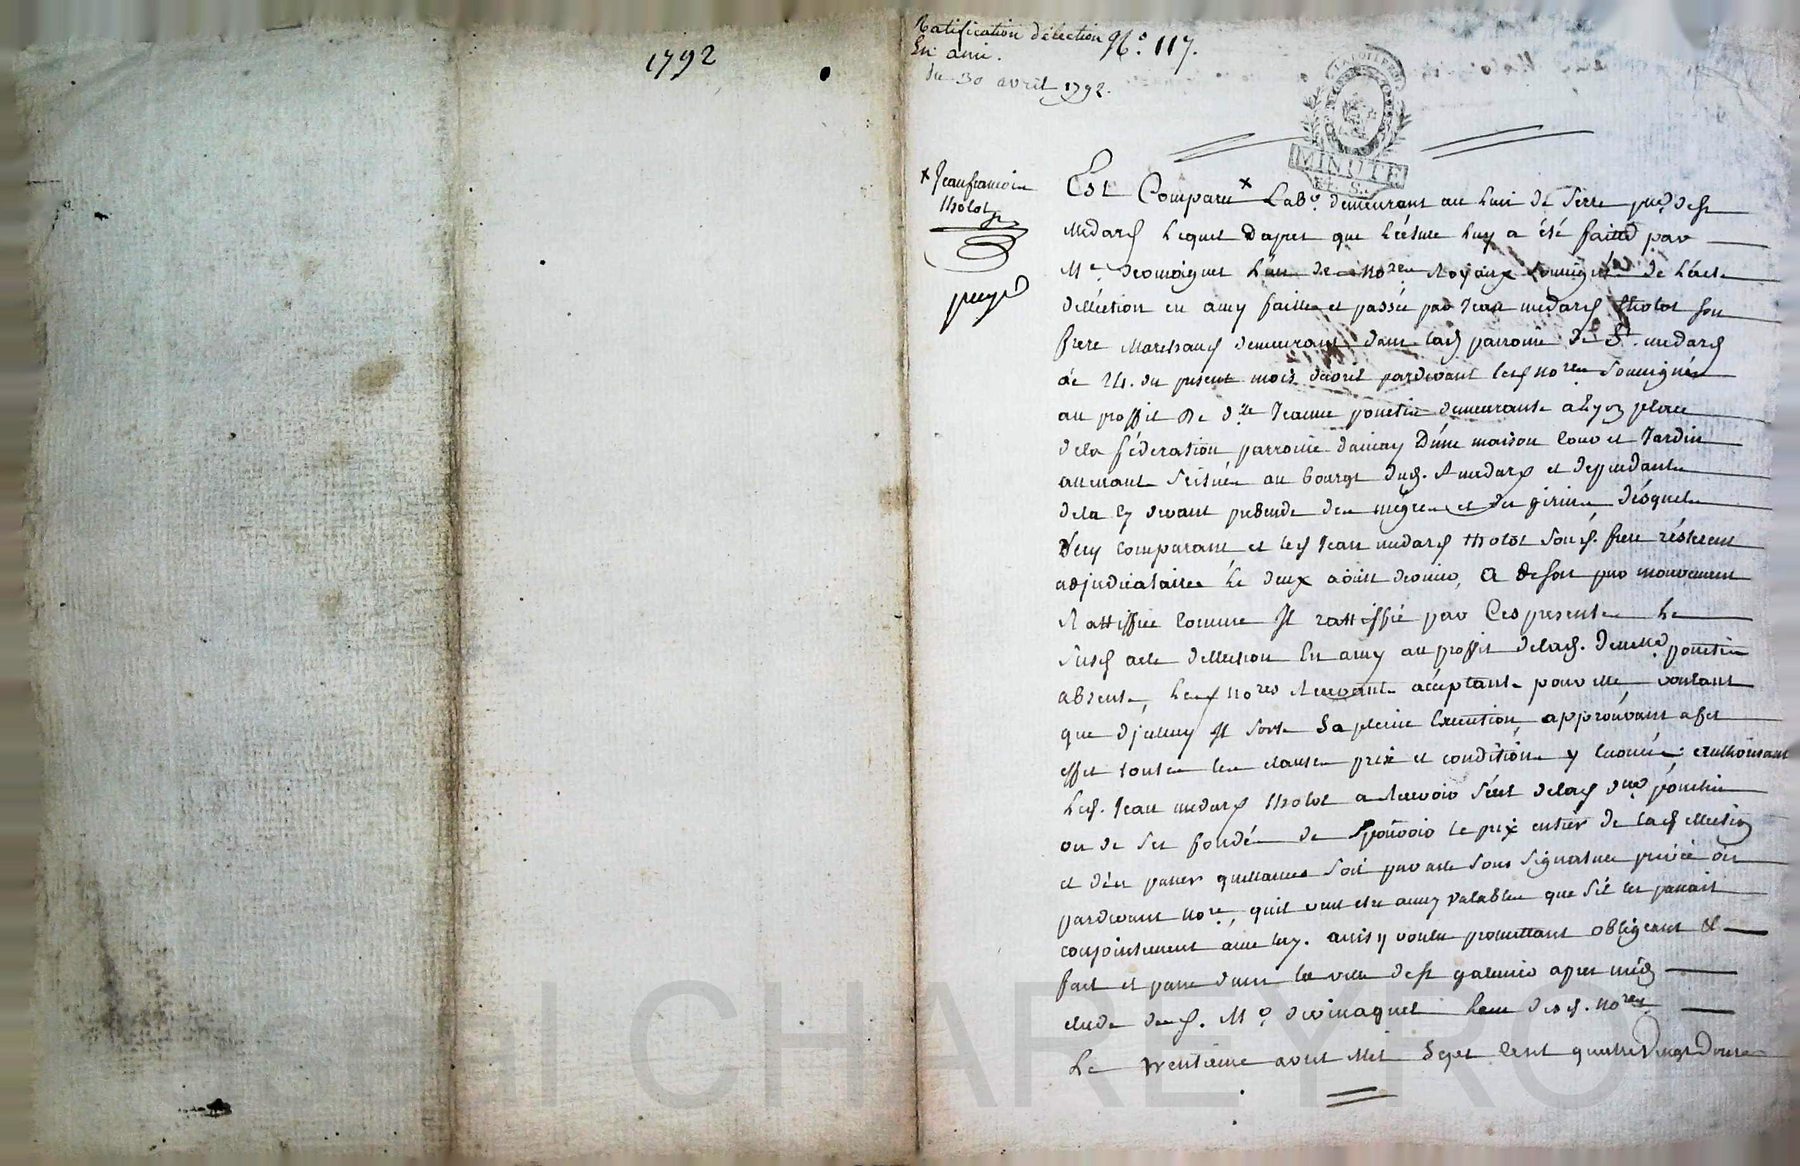 1792
Ratification d'élection N.° 117.
En ami.
du 30 avril 1792.
MINUTE
x Jeanfrancois
tholot
Est Comparu x Lab.r demeurant au lieu de Serre par.se de st
Medard Lequel Dapres que lecture luy a été faitte par
M.e devoiquet L'un de nores Royaux soussignés de L'acte
dellection en amy faitte et passée par Jean medard tholot son
frere Marchand demeurant dans lad parroisse de St. medard
de 24. du present mois davril pardevant lesd nores soussignés
au proffit de d.lle Jeanne ponctin demeurante a Lyon place
dela féderation parroisse dainay D'une maison cour et Jardin
au bourgt dud. st medard et deppendante
dela cy devant prebende des et des girin desquels
comparant et led Jean medard tholot son d. frere résterent
adjudicataires Le deux aout dernier, a de son pur mouvement
Rattiffié comme Il rattiffie par Ces presentes Le
susd acte dellection En amy au proffit delad. Demlle ponctin
absente, Lesd nores Recevants acceptants pour elle, voulant
que djcelluy Il sorte Sa pleine Execution, approuvant a cet
effet toutes les clauses prix et conditions y enoncées authorisant
Led. Jean medard tholot a Recevoir seul delad d.lle ponctin
ou de ses fondés de pouvoir le prix entier de lad ellection
et den passer quittances soit par acte sous signature privée ou
pardevant nores, quil veut etre aussy valables que sil les passait
conjointement avec luy. ainsy voulu promettant obligeant &
fait et passé dans la ville de st galmier apres midy
etude dud. M.e L'un desd. nores
Le trentieme avril Mil Sept Cent quatre Vingt Douze
CHAREYRON